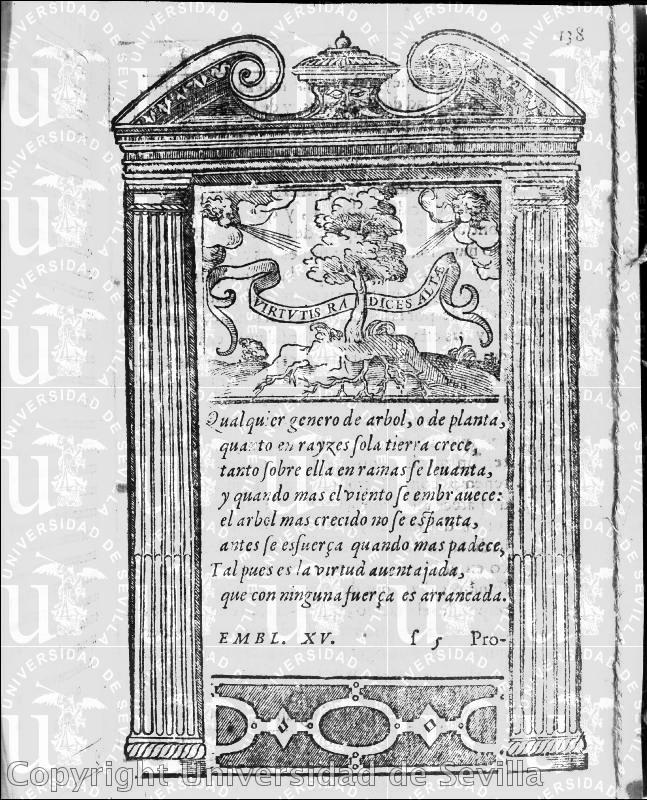 138
VIRTVTIS RADICES ALTÆ
Qualquier genero de arbol, o de planta,
quanto en rayzes ſola tierra crece,
tanto ſobre ella en ramas ſe leuanta,
y quando mas el viento ſe embrauece:
el arbol mas crecido no ſe eſpanta,
antes ſe esfuerça quando mas padece,
Tal pues es la virtud auentajada,
que con ninguna fuerça es arrancada.
EMBL. XV. ſ 5 Pro-
Copyright Universidad de Sevilla